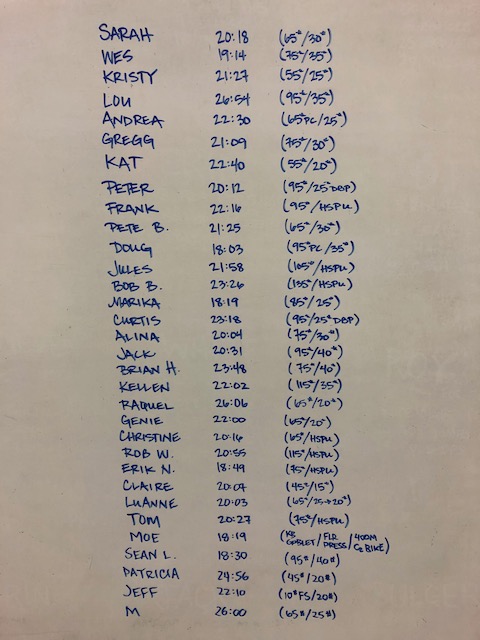 SARAH 20:18 (65#/30#)
WES 19:14 (75#/35#)
KRISTY 21:27 (55#/25#)
LOU 26:54 (95#/35#)
ANDREA 22:30 (65#PC/25#)
GREGG 21:09 (75#/30#)
KAT 22:40 (55#/20#)
PETER 20:12 (95#/25#DBP)
FRANK 22:16 (95#/HSPU)
PETE B. 21:25 (65#/30#)
DOUG 18:03 (95#PC/35#)
JULES 21:58 (105#/HSPU)
BOB B. 23:26 (135#/HSPU)
MARIKA 18:19 (85#/25#)
CURTIS 23:18 (95#/25#DBP)
ALINA 20:04 (75#/30#)
JACK 20:31 (95#/40#)
BRIAN H. 23:48 (75#/40#)
KELLEN 22:02 (115#/35#)
RAQUEL 26:06 (65#/20#)
GENIE 22:00 (65/20#)
CHRISTINE 20:16 (65#/HSPU)
ROB W. 20:55 (115#/HSPU)
ERIK N. 18:49 (75#/HSPU)
CLAIRE 20:07 (45#/15#)
LUANNE 20:03 (65#/25→20#)
TOM 20:27 (75#/HSPU)
MOE 18:19 (KB GOBLET/FLR PRESS/400M C2 BIKE)
SEAN L. 18:30 (95#/40#)
PATRICIA 24:56 (45#/20#)
JEFF 22:10 (10#FS/20#)
M 26:00 (65#/25#)